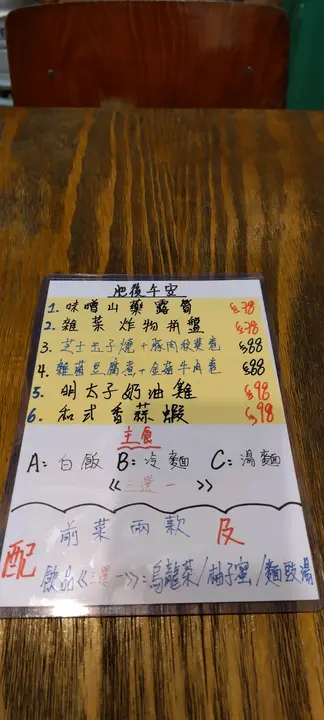 肥後午宴
1. 味噌山藥露筍 $78
2. 雜菜炸物拼盤 $78
3. 芝士玉子燒+豚肉秋葵卷 $88
4. 雜菌豆腐煮+金菇牛肉卷 $88
5. 明太子奶油雞 $98
6. 和式香蒜蝦 $98
主食
A: 白飯 B: 冷麵 C: 湯麵
《三選一》
配 前菜兩款 及
飲品《三選一》: 烏龍茶/柚子蜜/麵豉湯